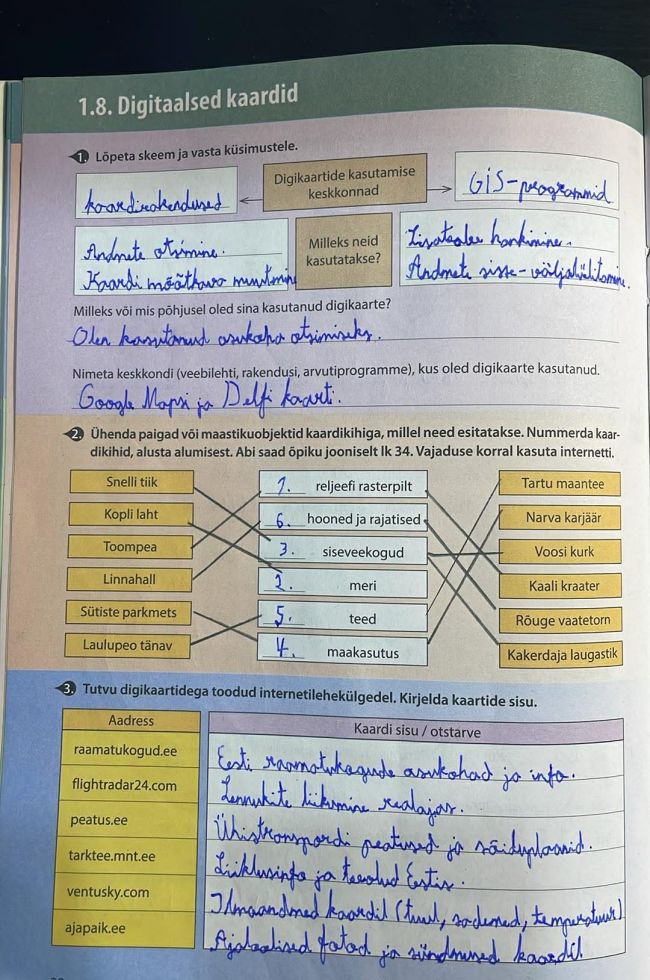 1.8. Digitaalsed kaardid
1. Lõpeta skeem ja vasta küsimustele.
kaardirakendused
Digikaartide kasutamise
keskkonnad
GIS-programmid
Andmete otsimine.
Kaardi mõõtkava muutmine
Milleks neid
kasutatakse?
Lisateabe hankimine.
Andmete sisse-väljalülitamine.
Milleks või mis põhjusel oled sina kasutanud digikaarte?
Olen kasutanud asukoha otsimiseks.
Nimeta keskkondi (veebilehti, rakendusi, arvutiprogramme), kus oled digikaarte kasutanud.
Google Mapsi ja Delfi kaarti.
2. Ühenda paigad või maastikuobjektid kaardikihiga, millel need esitatakse. Nummerda kaar-
dikihid, alusta alumisest. Abi saad õpiku jooniselt lk 34. Vajaduse korral kasuta internetti.
Snelli tiik
1. reljeefi rasterpilt
Tartu maantee
Kopli laht
6. hooned ja rajatised
Narva karjäär
Toompea
3. siseveekogud
Voosi kurk
Linnahall
2. meri
Kaali kraater
Sütiste parkmets
5. teed
Rõuge vaatetorn
Laulupeo tänav
4. maakasutus
Kakerdaja laugastik
3. Tutvu digikaartidega toodud internetilehekülgedel. Kirjelda kaartide sisu.
Aadress
Kaardi sisu / otstarve
raamatukogud.ee
Eesti raamatukogude asukohad ja info.
flightradar24.com
Lennukite liikumine reaalajas.
peatus.ee
Ühistranspordi peatused ja sõiduplaanid.
tarktee.mnt.ee
Liiklusinfo ja teeolud Eestis.
ventusky.com
Ilmaandmed kaardil (tuul, sademed, temperatuur)
ajapaik.ee
Ajaloolised fotod ja sündmused kaardil